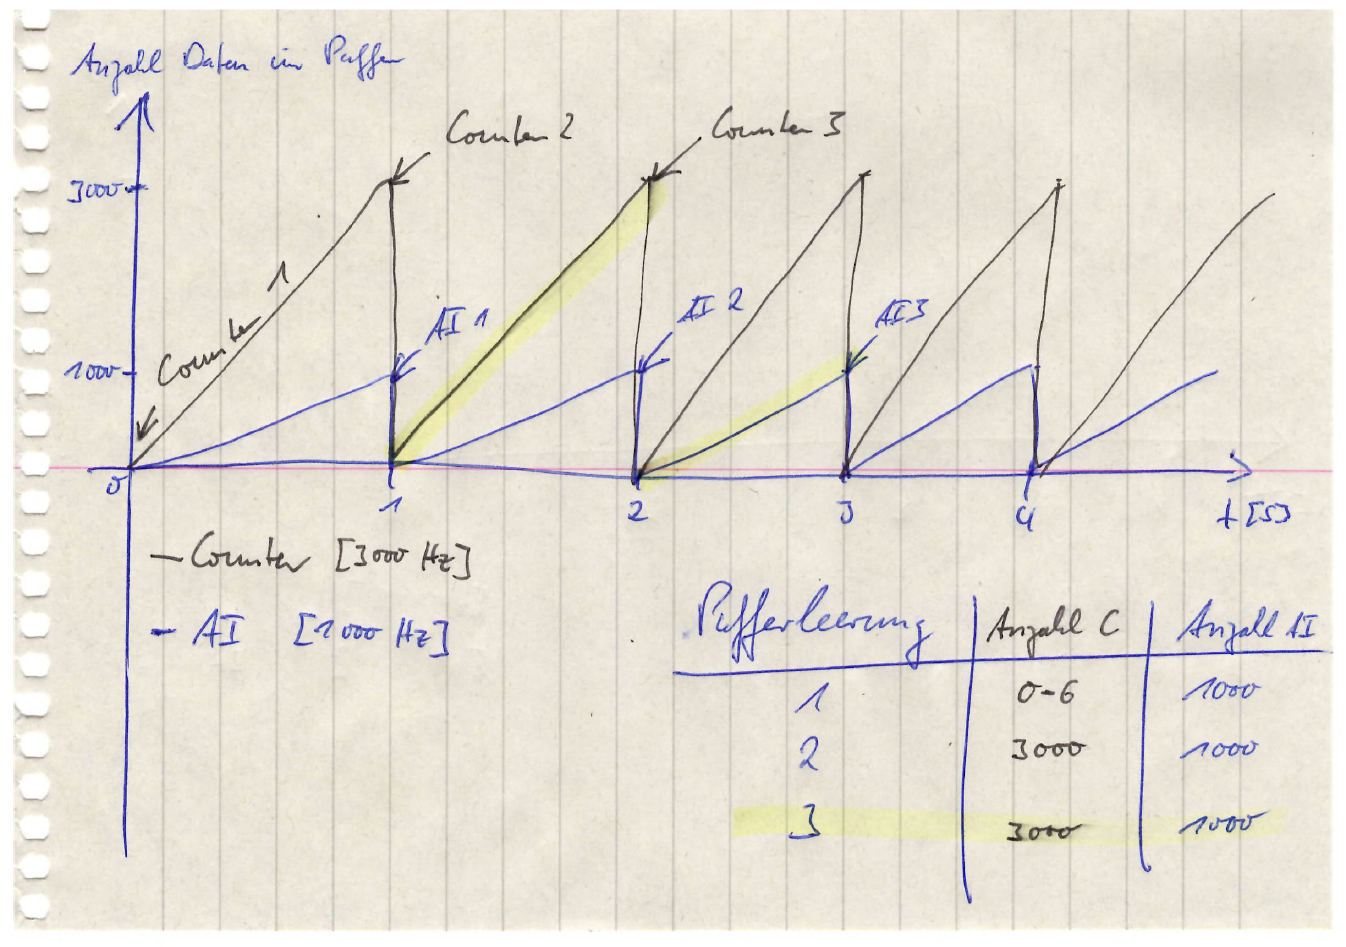 Anzahl Daten im Puffer
Counter 2
Counter 3
3000
Counter 1
AI 1
AI 2
AI 3
1000
0
1
2
3
4
t [s]
— Counter [3000 Hz]
- AI [1000 Hz]
Pufferleerung Anzahl C Anzahl AI
1 0-6 1000
2 3000 1000
3 3000 1000